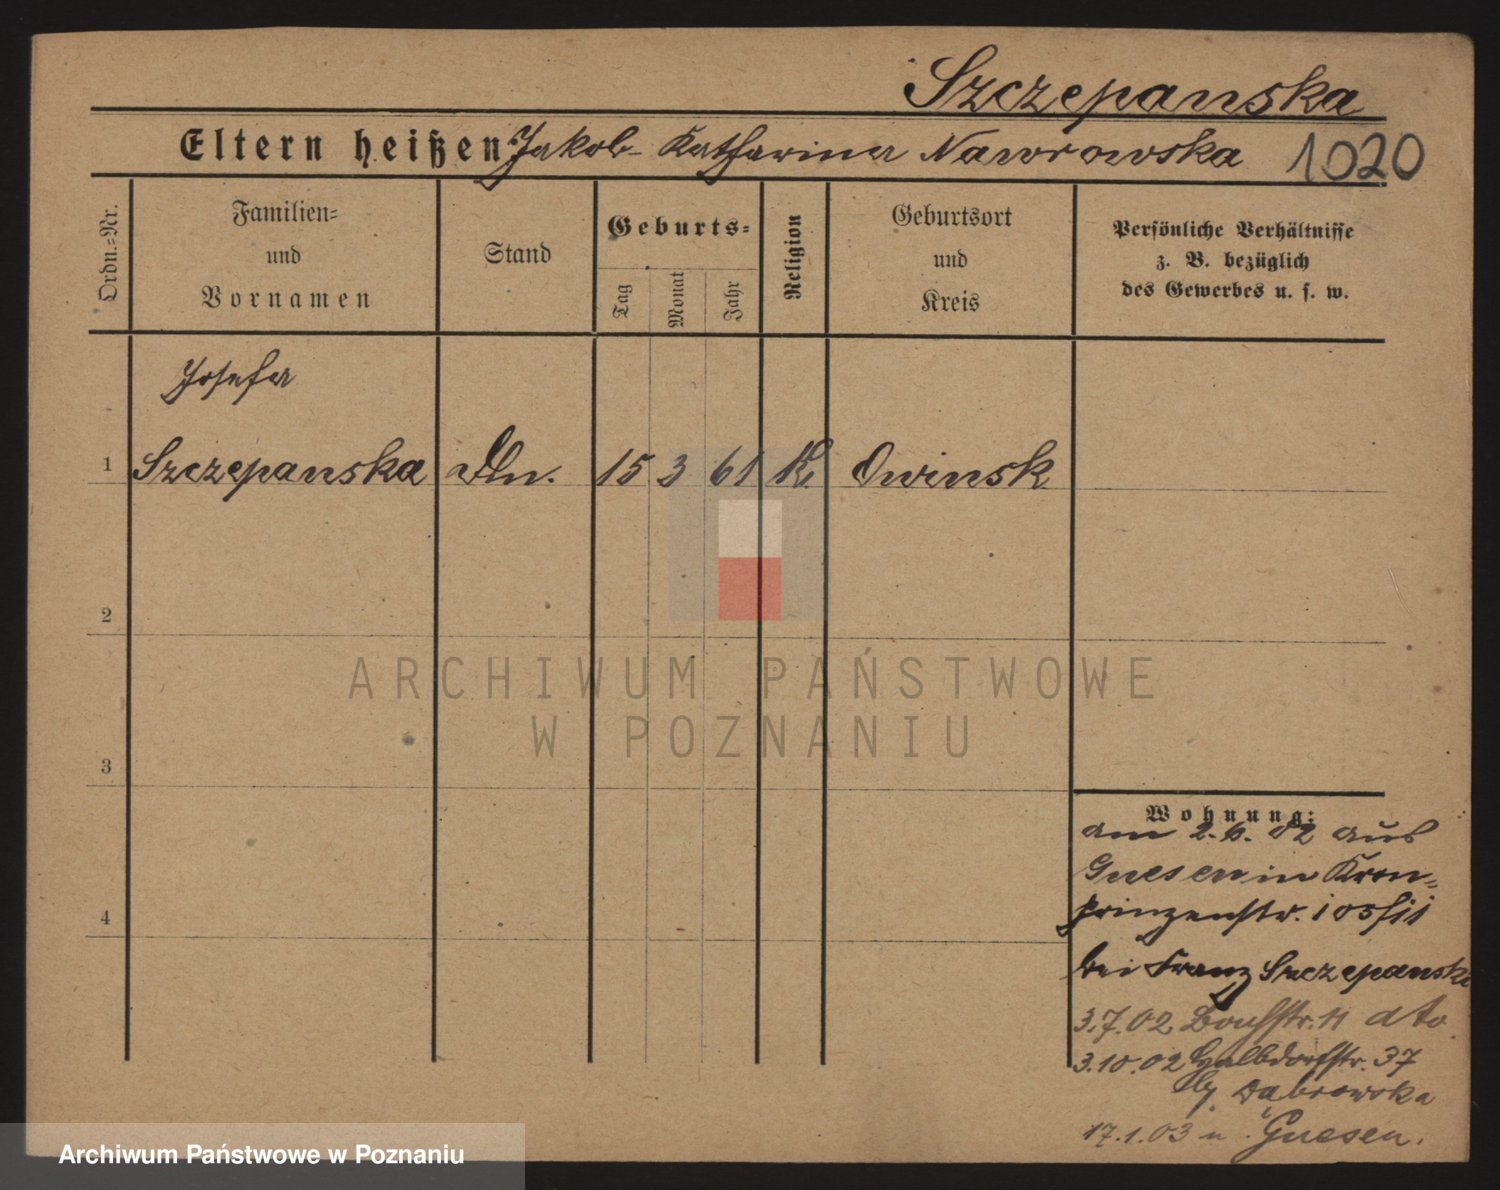 Szczepanska
Eltern heißen Jakob - Katharina Nawrowska 1020
Ordn.=Nr.
Familien=
und
Vornamen
Stand
Geburts=
Tag
Monat
Jahr
Religion
Geburtsort
und
Kreis
Persönliche Verhältnisse
z. B. bezüglich
des Gewerbes u. s. w.
Josefa
1 Szczepanska 15 3 61 K. Owinsk
2
3
4
Wohnung:
am 2.6.02 aus
Gnesen in Kron=
prinzenstr.
bei Franz Szczepanski
3.7.02 11 dto
3.10.02 Halbdorfstr. 37
Dabrowska
17.1.03 n. Gnesen.
ARCHIWUM PAŃSTWOWE
W POZNANIU
Archiwum Państwowe w Poznaniu